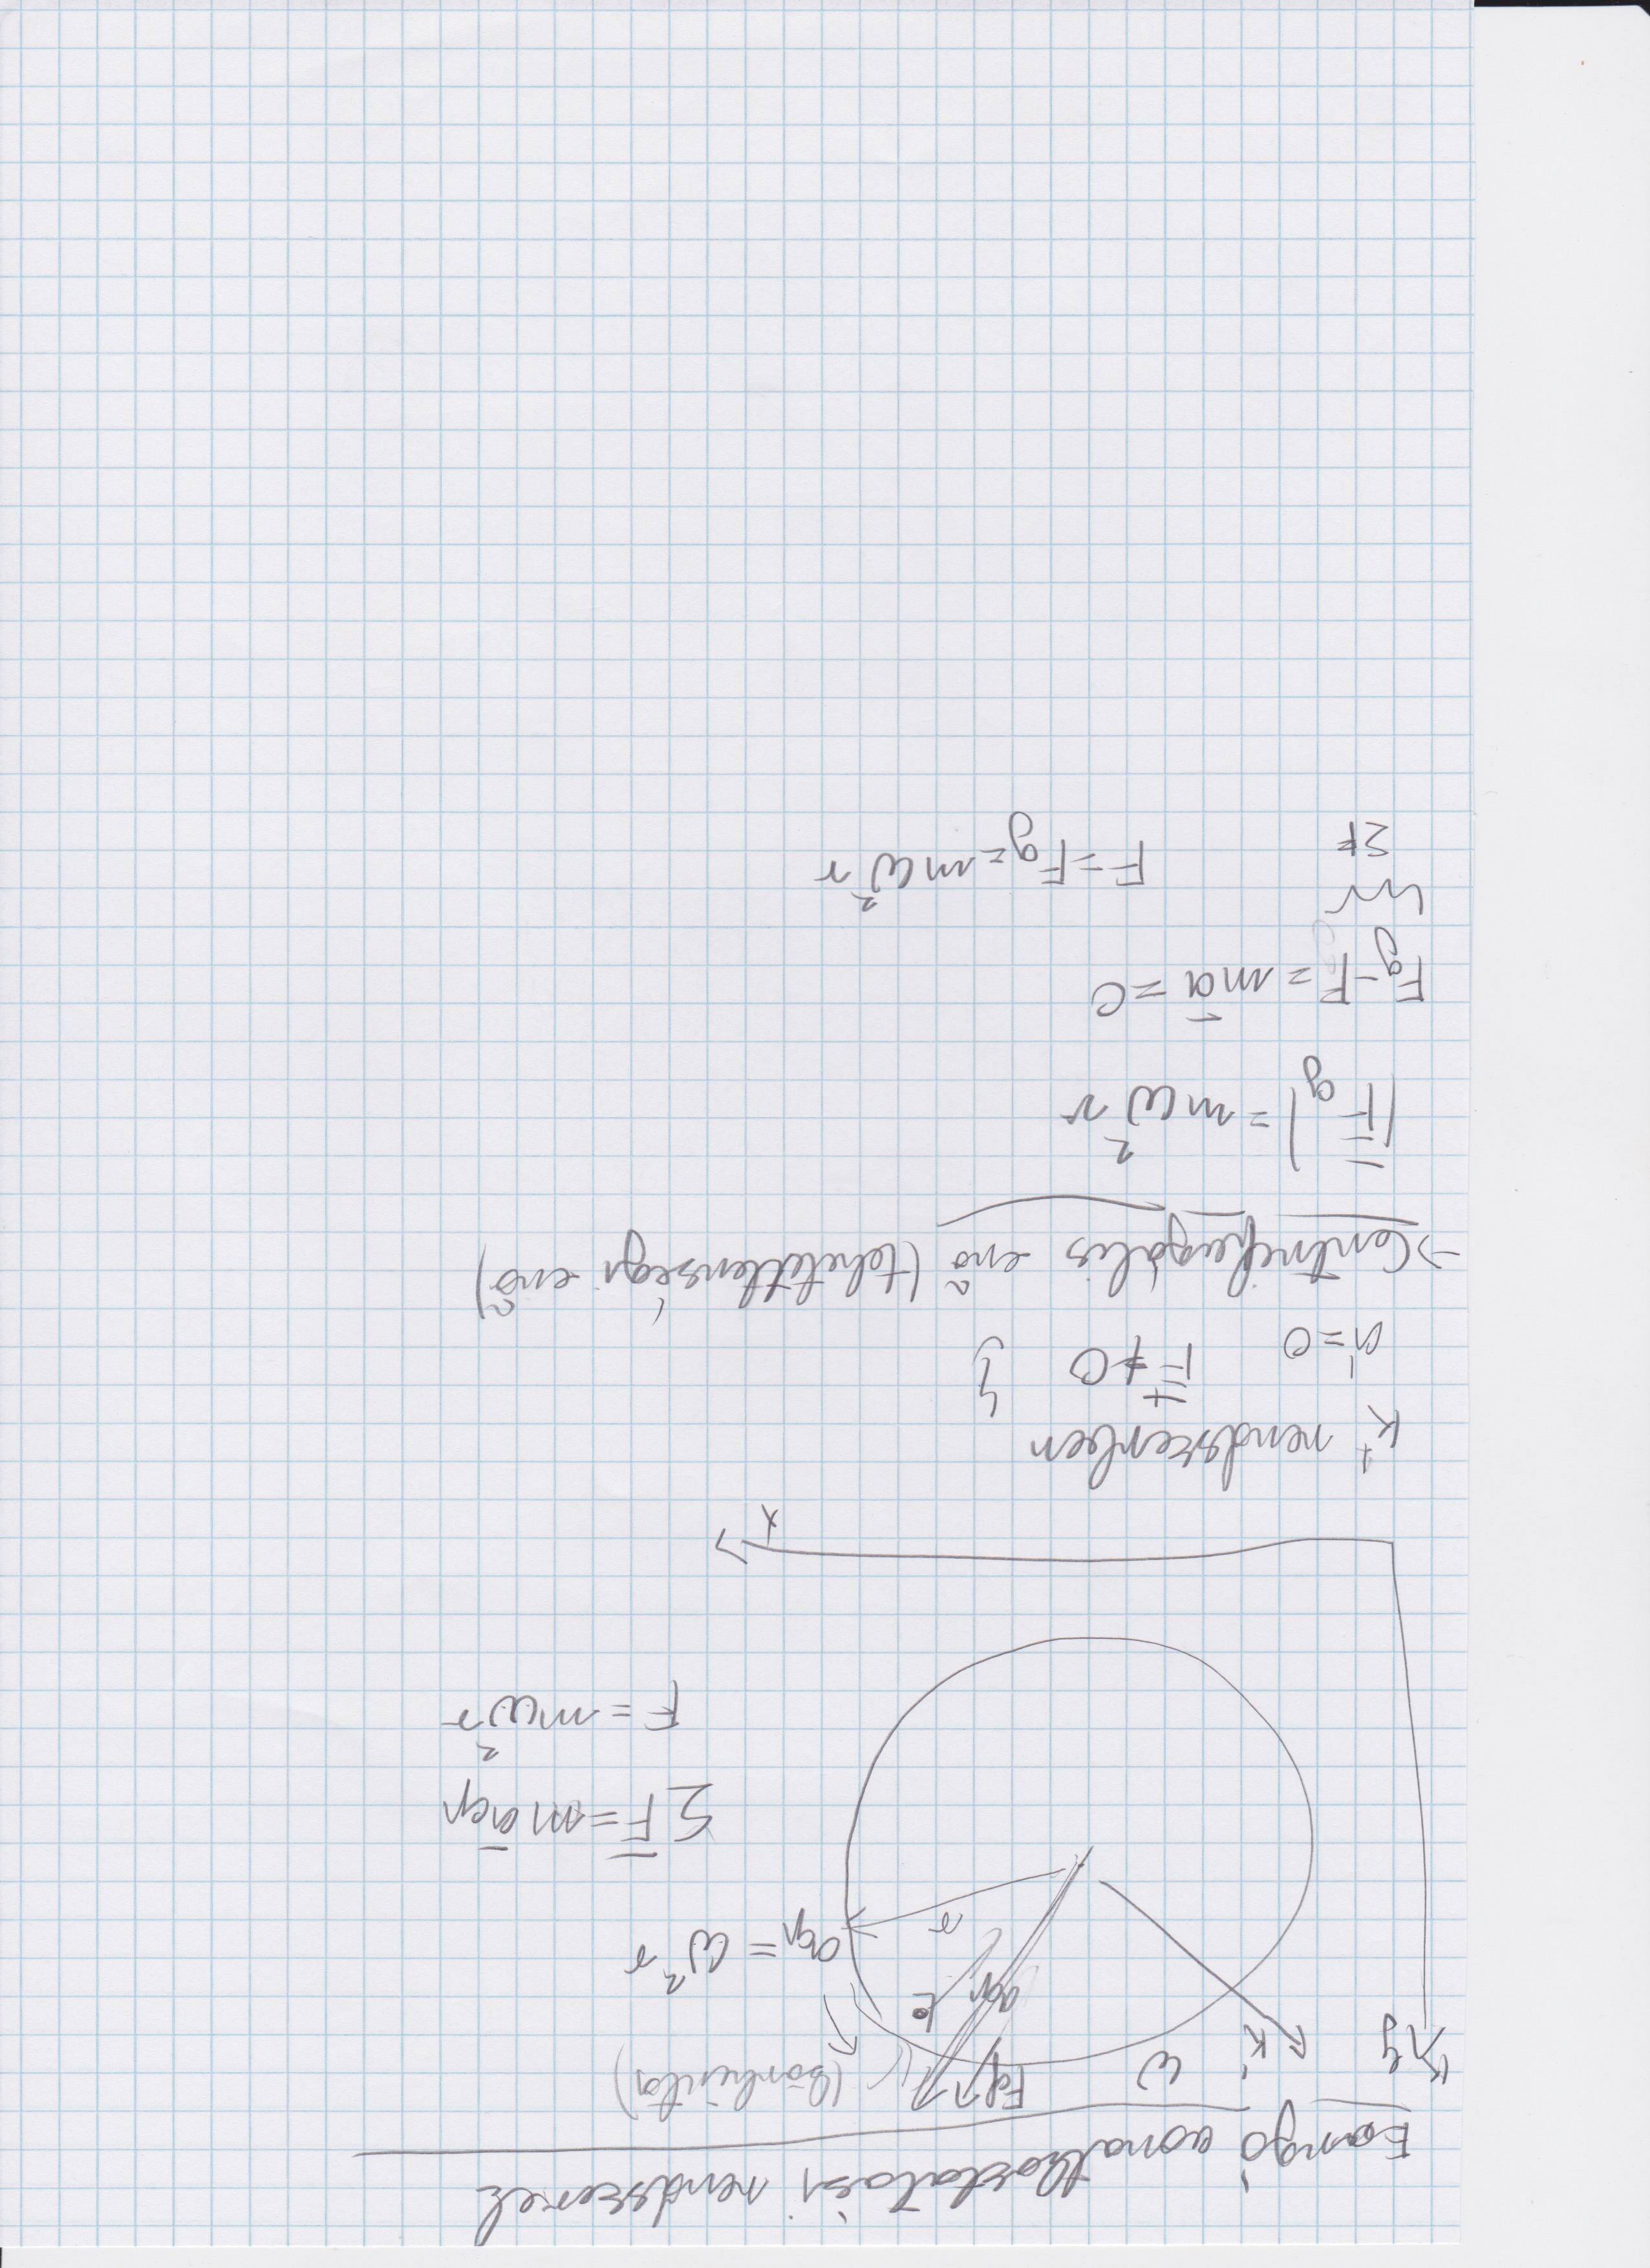 vonatkoztatási rendszerek
y
K'
ω
Fcf
(körhinta)
acp
r
acp = ω²r
ΣF̅ = ma̅cp
F = mω²r
x
K' rendszerben
a' = 0 F̅ ≠ 0
→ Centrifugális erő (tehetetlenségi erő)
|F̅g| = mω²r
Fg - F = ma' = 0
ΣF
F = Fg = mω²r